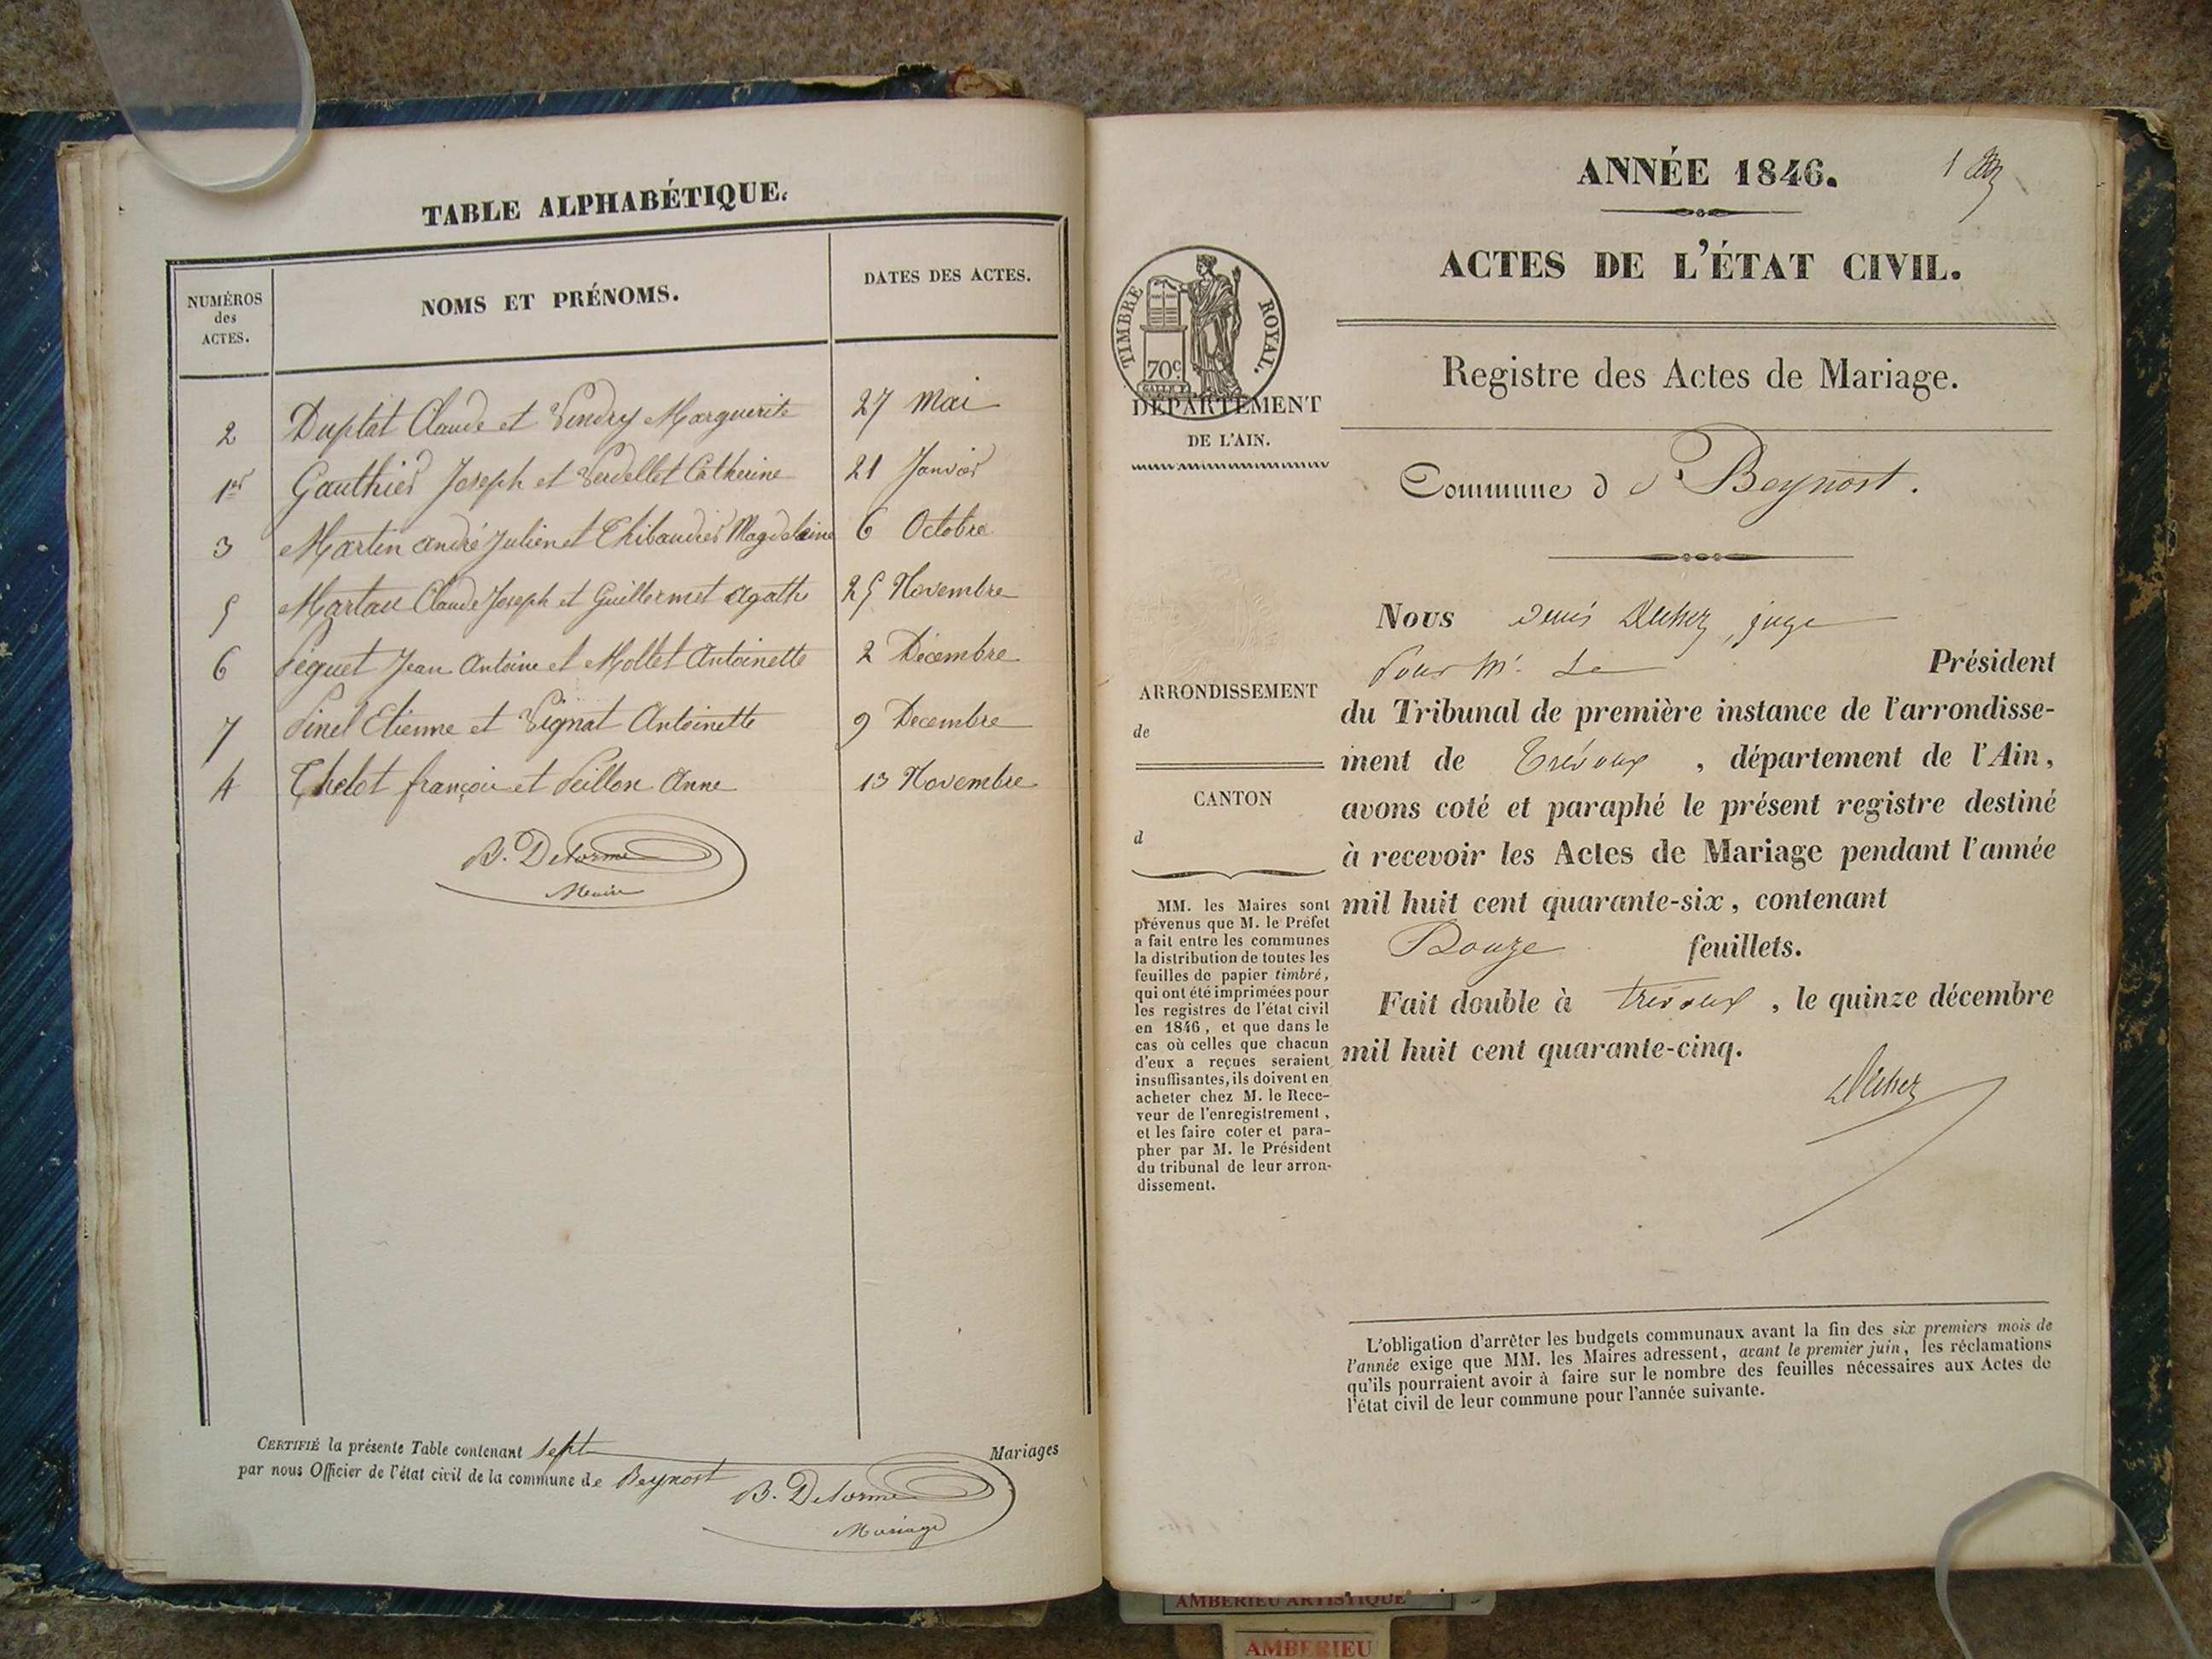 TABLE ALPHABÉTIQUE.
NUMÉROS
des
ACTES.
NOMS ET PRÉNOMS.
DATES DES ACTES.
2 Duplat Claude et Vendry Marguerite 27 Mai
1er Gauthier Joseph et Verdellet Catherine 21 Janvier
3 Martin andré Julien et Thibaudier Magdelaine 6 Octobre
5 Martau Claude Joseph et Guillermet Agathe 25 Novembre
6 Péguet Jean Antoine et Mollet Antoinette 2 Décembre
7 Pinel Etienne et Vignat Antoinette 9 Decembre
4 Thelot françois et Peillon Anne 13 Novembre
B. Delorme
Maire
CERTIFIÉ la présente Table contenant sept Mariages
par nous Officier de l'état civil de la commune de Beynost
B. Delorme
ANNÉE 1846.
1
ACTES DE L'ÉTAT CIVIL.
TIMBRE ROYAL.
70c
DÉPARTEMENT
DE L'AIN.
Registre des Actes de Mariage.
Commune d e Beynost.
Nous Denis , juge
Pour Mr. Le Président
ARRONDISSEMENT
de
CANTON
d
du Tribunal de première instance de l'arrondisse-
ment de Trévoux , département de l'Ain,
avons coté et paraphé le présent registre destiné
à recevoir les Actes de Mariage pendant l'année
mil huit cent quarante-six, contenant
Douze feuillets.
Fait double à Trévoux , le quinze décembre
mil huit cent quarante-cinq.
MM. les Maires sont
prévenus que M. le Préfet
a fait entre les communes
la distribution de toutes les
feuilles de papier timbré,
qui ont été imprimées pour
les registres de l'état civil
en 1846, et que dans le
cas où celles que chacun
d'eux a reçues seraient
insuffisantes, ils doivent en
acheter chez M. le Rece-
veur de l'enregistrement,
et les faire coter et para-
pher par M. le Président
du tribunal de leur arron-
dissement.
L'obligation d'arrêter les budgets communaux avant la fin des six premiers mois de
l'année exige que MM. les Maires adressent, avant le premier juin, les réclamations
qu'ils pourraient avoir à faire sur le nombre des feuilles nécessaires aux Actes de
l'état civil de leur commune pour l'année suivante.
AMBERIEU ARTISTIQUE
AMBERIEU